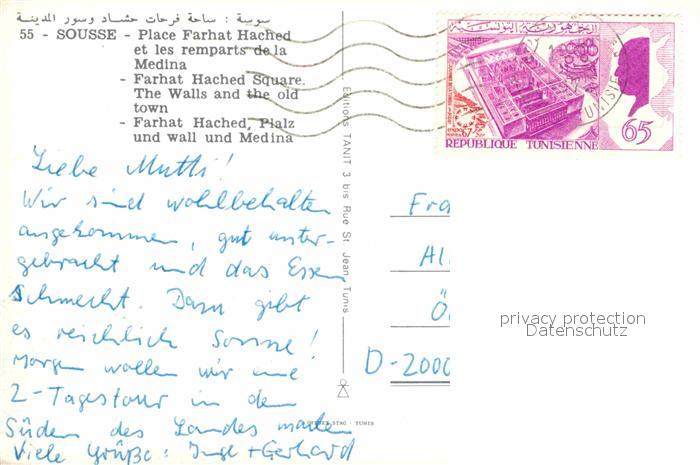 سوسة : ساحة فرحات حشاد وسور المدينة
55 - SOUSSE - Place Farhat Hached
et les remparts de la
Medina
- Farhat Hached Square.
The Walls and the old
town
- Farhat Hached, Plalz
und wall und Medina
Liebe Mutti!
Wir sind wohlbehalten
angekommen, gut unter-
gebracht und das Essen
schmeckt. Dazu gibt
es reichlich Sonne!
Morgen wollen wir eine
2-Tagestour in den
Süden des Landes machen
Viele Grüße: Inge + Gerhard
Editions TANIT 3 bis Rue St. Jean, Tunis
الجمهورية التونسية
EXPO 67
65
REPUBLIQUE TUNISIENNE
Fra
Al
Ö
D-2000
privacy protection
Datenschutz
STAG - TUNIS